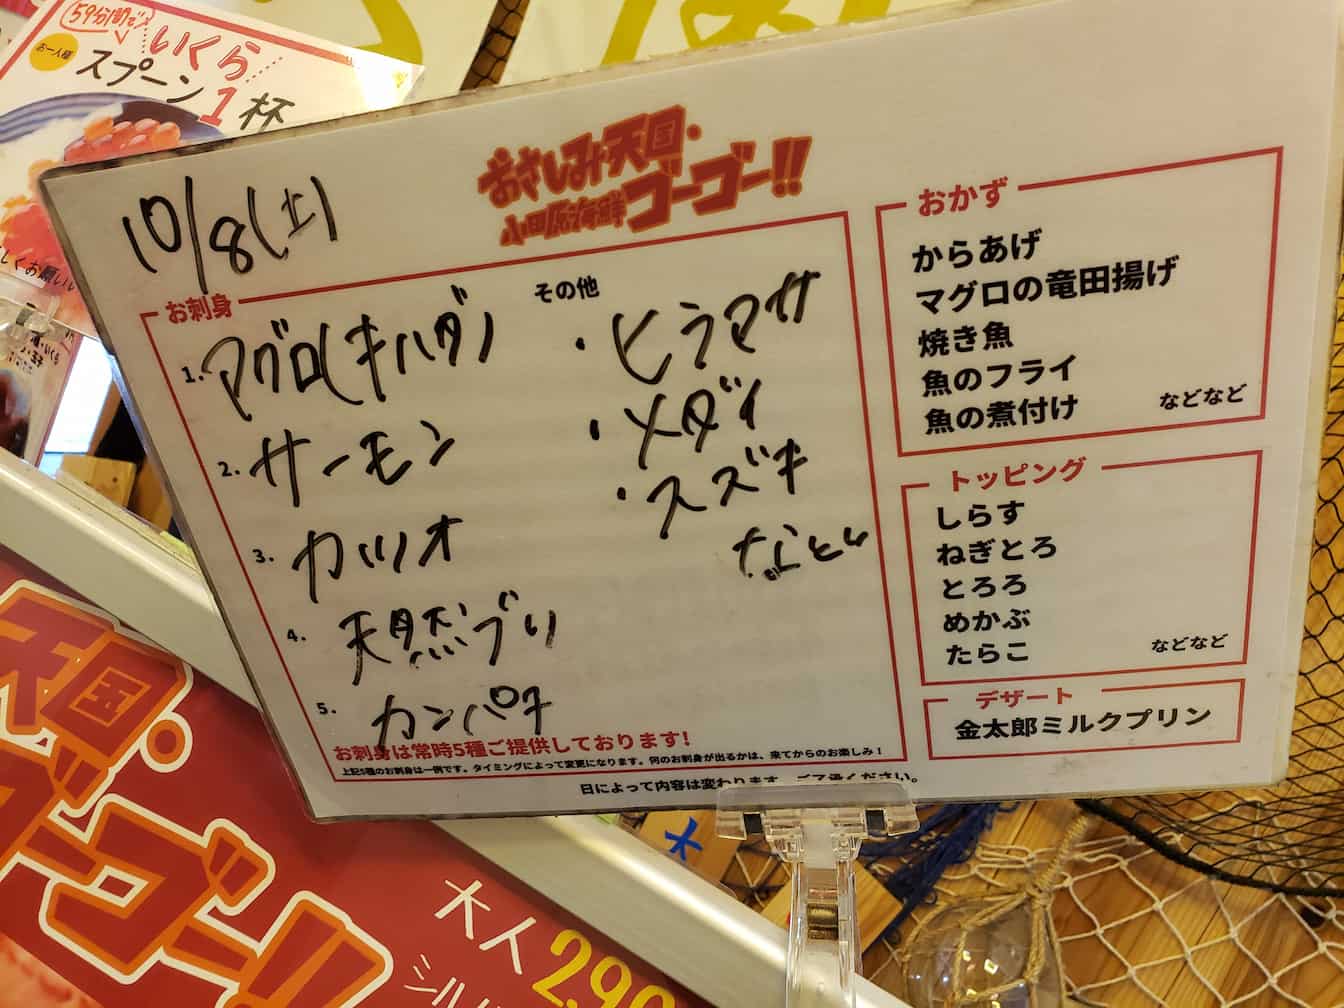 59分間で
いくら
お一人様
スプーン1杯
おさしみ天国・
小田原海鮮ゴーゴー!!
10/8(土)
お刺身
1. マグロ(キハダ)
2. サーモン
3. カツオ
4. 天然ブリ
5. カンパチ
その他
・ヒラマサ
・メダイ
・スズキ
など
お刺身は常時5種ご提供しております!
上記5種のお刺身は一例です。タイミングによって変更になります。何のお刺身が出るかは、来てからのお楽しみ!
おかず
からあげ
マグロの竜田揚げ
焼き魚
魚のフライ
魚の煮付け
などなど
トッピング
しらす
ねぎとろ
とろろ
めかぶ
たらこ
などなど
デザート
金太郎ミルクプリン
日によって内容は変わります。ご了承ください。
天国・
ゴー!!
大人